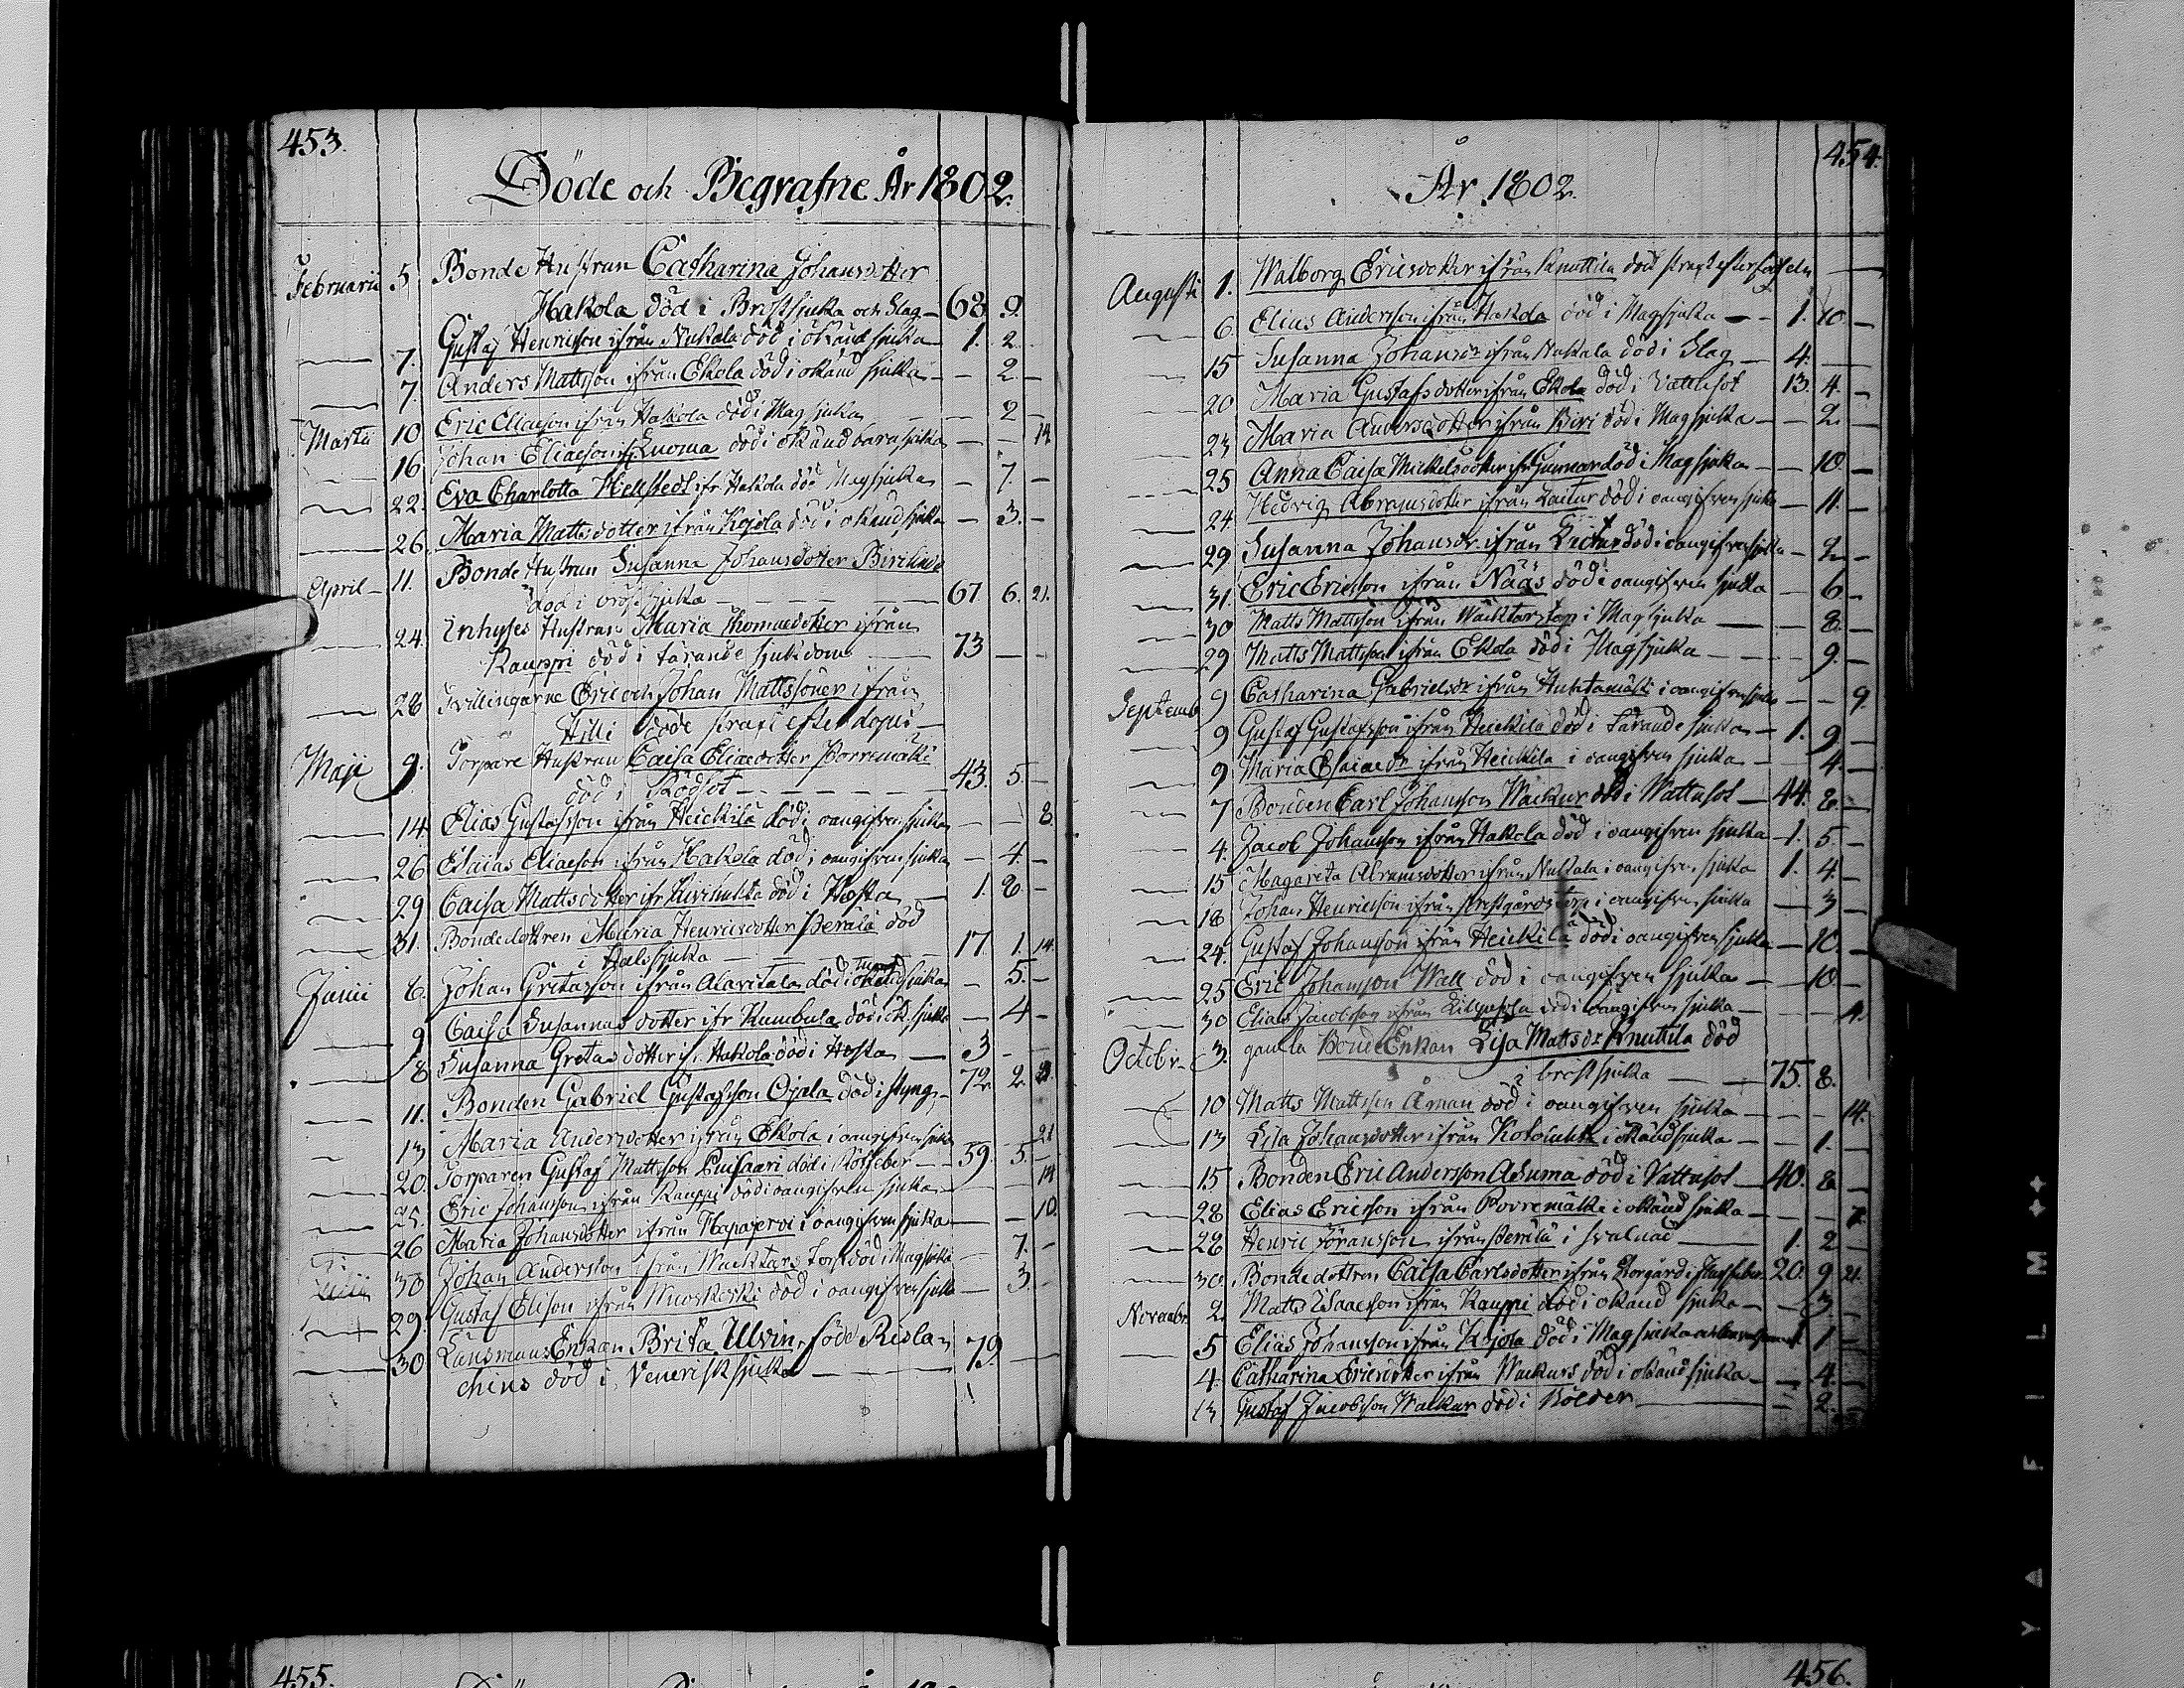 453.
Döde och Begrafne År 1802.
Februarii 5. Bonde Hustrun Catharina Johansdotter
Hakola död i Bröstsjuka och Slag 68. 9.
7. Gustaf Henricsson ifrån Nukala död i okänd sjuka 1. 2.
7. Anders Mattsson ifrån Ekola död i okänd sjuka 2.
Martii 10 Eric Eliaeson ifrån Hakola död i Magsjuka 2
16 Johan Eliaeson ifr Luoma död i okänd barnsjuka 14
22. Eva Charlotta ifr Hakola död Magsjuka 7.
26. Maria Mattsdotter ifrån Kojola död i okänd sjuka 3.
April 11. Bonde Hustrun Susanna Johansdotter
död i bröstsjuka 67. 6. 21.
24. Inhyses Hustrun Maria Thomaedotter ifrån
Kauppi död i tärande sjukdom 73
28 Tvillingarne Eric och Johan Mattssöner ifrån
Hilli döde strax efter dopet
Maji 9. Torpare Hustrun Caisa Eliaedotter Porremäki
död i Rödsot 43. 5.
14. Elias Gustafsson ifrån Heickilä död i oangifven sjuka 8.
26 Esaias Eliaeson ifrån Hakola död i oangifven sjuka 4.
29 Caisa Mattsdotter ifr Kivihuhta död i Hosta 1. 8.
31. Bondedottren Maria Henricsdotter Perälä död
i Halssjuka 17. 1. 14.
Junii 6. Johan Gretasson ifrån Alavitala död i okänd sjuka 5.
9 Caisa Susannas dotter ifr Kumbula död i ok. sjuka 4
8 Susanna Gretas dotter ifr Hakola död i Hosta 3
11. Bonden Gabriel Gustafsson Ojala död i styng 72. 2.
13 Maria Andersdotter ifrån Ekola i oangifven sjuka 21
20. Torparen Gustaf Mattsson Luisaari död i Rötfeber 59. 5.
25. Eric Johansson ifrån Kauppi död i oangifven sjuka 14
26 Maria Johansdotter ifrån Haapajervi i oangifven sjuka 10.
30 Johan Andersson ifrån Wacktars torp död i Magsjuka 7.
29. Gustaf Elison ifrån Muoskoski död i oangifven sjuka 3.
30 Länsmans Enkan Brita Ulvin, född Rislachius
död i Venerisk sjuka 79.
454.
År 1802.
Augusti 1. Walborg Ericsdotter ifrån Knuttila död strax efter födseln
6. Elias Andersson ifrån Hakola död i Magsjuka 1. 10.
15 Susanna Johansdr ifrån Nukala död i Slag 4.
20 Maria Gustafsdotter ifrån Ekola död i Vattusot 13. 4.
23 Maria Andersdotter ifrån Biri död i Magsjuka 2.
25 Anna Caisa Mickelsdotter ifr Gunnar död i Magsjuka 10.
24 Hedvig Abramsdotter ifrån död i oangifven sjuka 11.
29 Susanna Johansdr. ifrån död i oangifven sjuka 2.
31. Eric Ericsson ifrån Nääs död i oangifven sjuka 6.
30 Matts Mattsson ifrån Wacktars torp i Magsjuka 8.
29 Matts Mattsson ifrån Ekola död i Magsjuka 9.
Septemb 9 Catharina Gabrielsdr ifrån Huhtamäki i oangifven sjuka 9.
9 Gustaf Gustafsson ifrån Heickilä död i tärande sjuka 1. 9
9 Maria Esaiaedr ifrån Heickila i oangifven sjuka 4.
7 Bonden Carl Johansson Wackur död i Wattusot 44. 8.
4. Jacob Johansson ifrån Hakola död i oangifven sjuka 1. 5.
15 Magareta Abramsdotter ifrån Nukala i oangifven sjuka 1. 4.
18 Johan Henricsson ifrån Prestgårdstorp i oangifven sjuka 3
24. Gustaf Johansson ifrån Heickilä död i oangifven sjuka 10.
25 Eric Johansson Wall död i oangifven sjuka 10.
30 Elias Jacobson ifrån död i oangifven sjuka 4.
Octobr 3. gamla BondeEnkan Lisa Mattsdr Knuttila död
i bröstsjuka 75. 8.
10 Matts Mattsson Åman död i oangifven sjuka 14.
13 Lisa Johansdotter ifrån Kotohuhta i okänd sjuka 1.
15 Bonden Eric Andersson Asuma död i Vattusot 40. 8
28 Elias Ericsson ifrån Porremäki i okänd sjuka 7.
28 Henric Jöransson ifrån Perälä i svalnad 1. 2
30. Bondedottren Caisa Carlsdotter ifrån Storgård i 20. 9 21.
Novembr 2. Matts Isaacsson ifrån Kauppi död i okänd sjuka 3
5 Elias Johansson ifrån Kojola död i Magsjuka 1. 1
4. Catharina Ericsdotter ifrån Wackurs död i okänd sjuka 4.
13 Gustaf Jacobson Wackur död i Bölder 2.
455.
456.
FILM